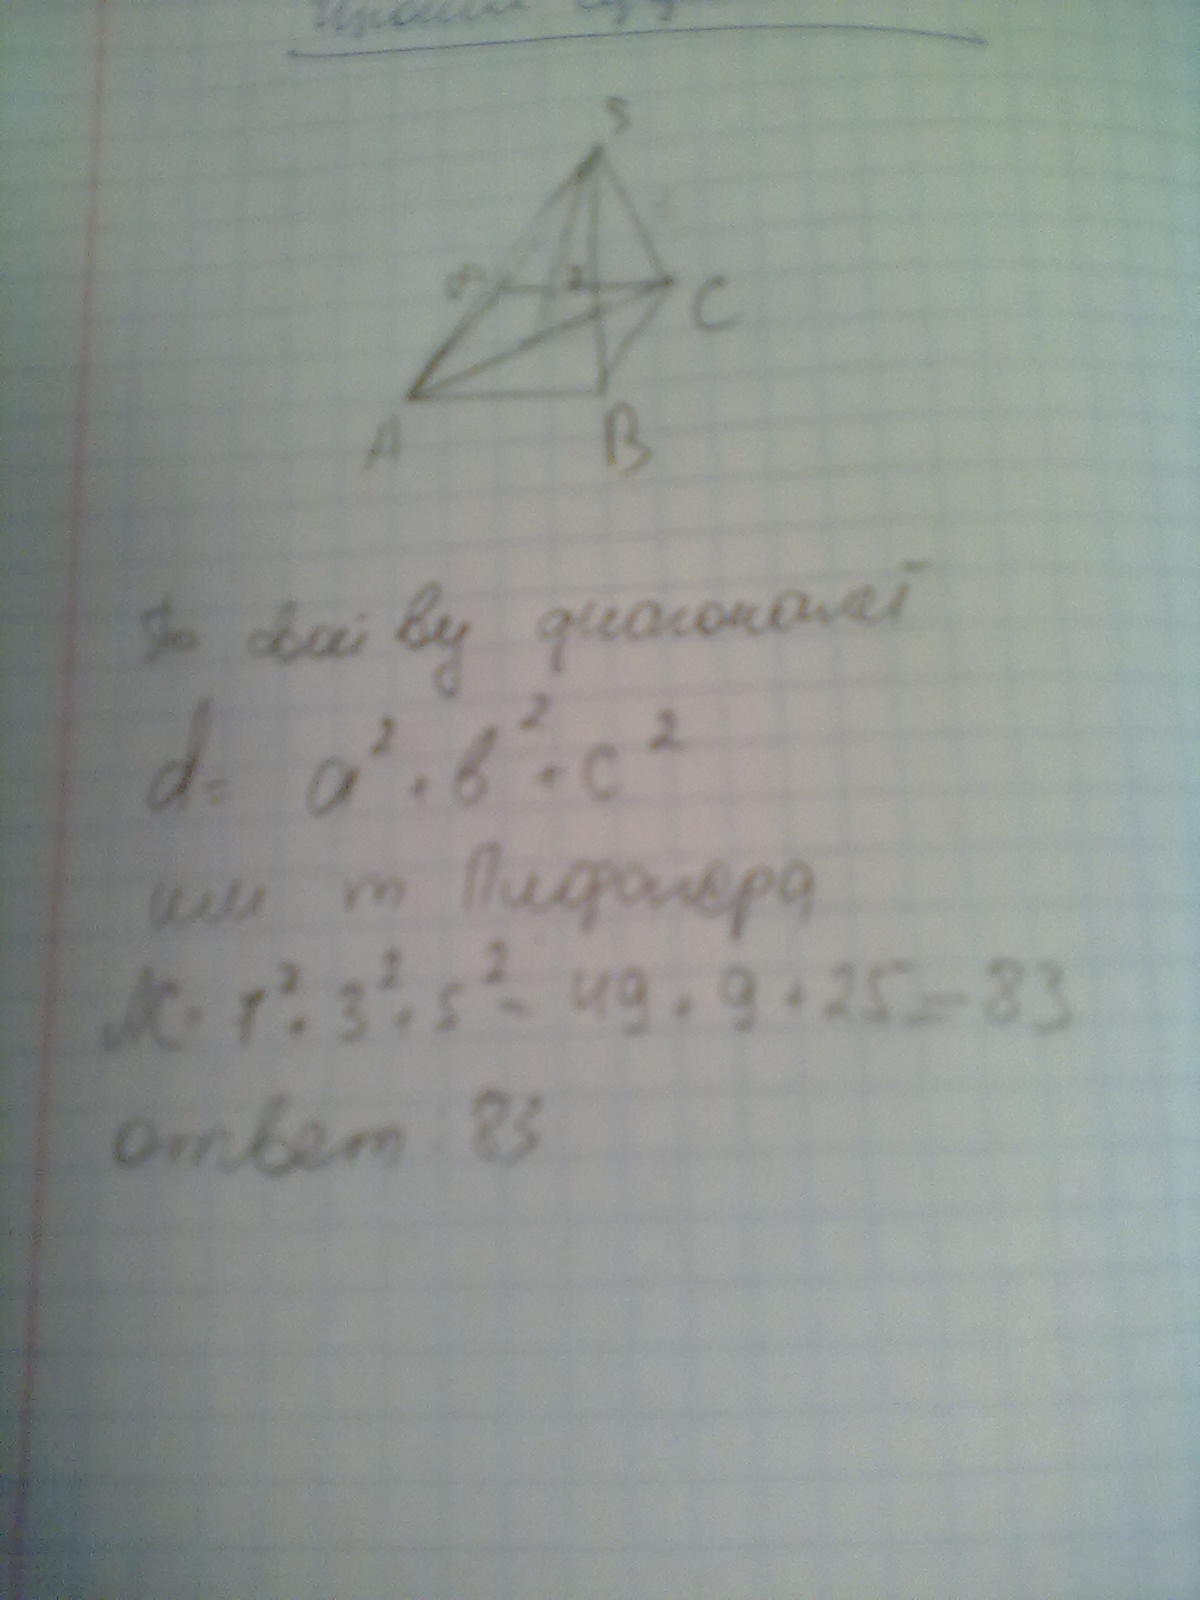 S
C
A
B
По свой ву диагоналей
d= a² + b² + c²
или т Пифагора
AC= 7² + 3² + 5² = 49 + 9 + 25 = 83
ответ: 83